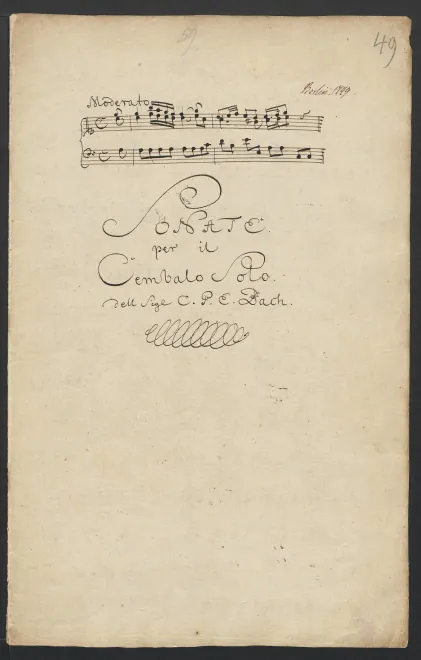 49
Berlin. 1749.
Moderato
SONATE.
per il
Cembalo Solo.
dell Sigr C. P. E. Bach.